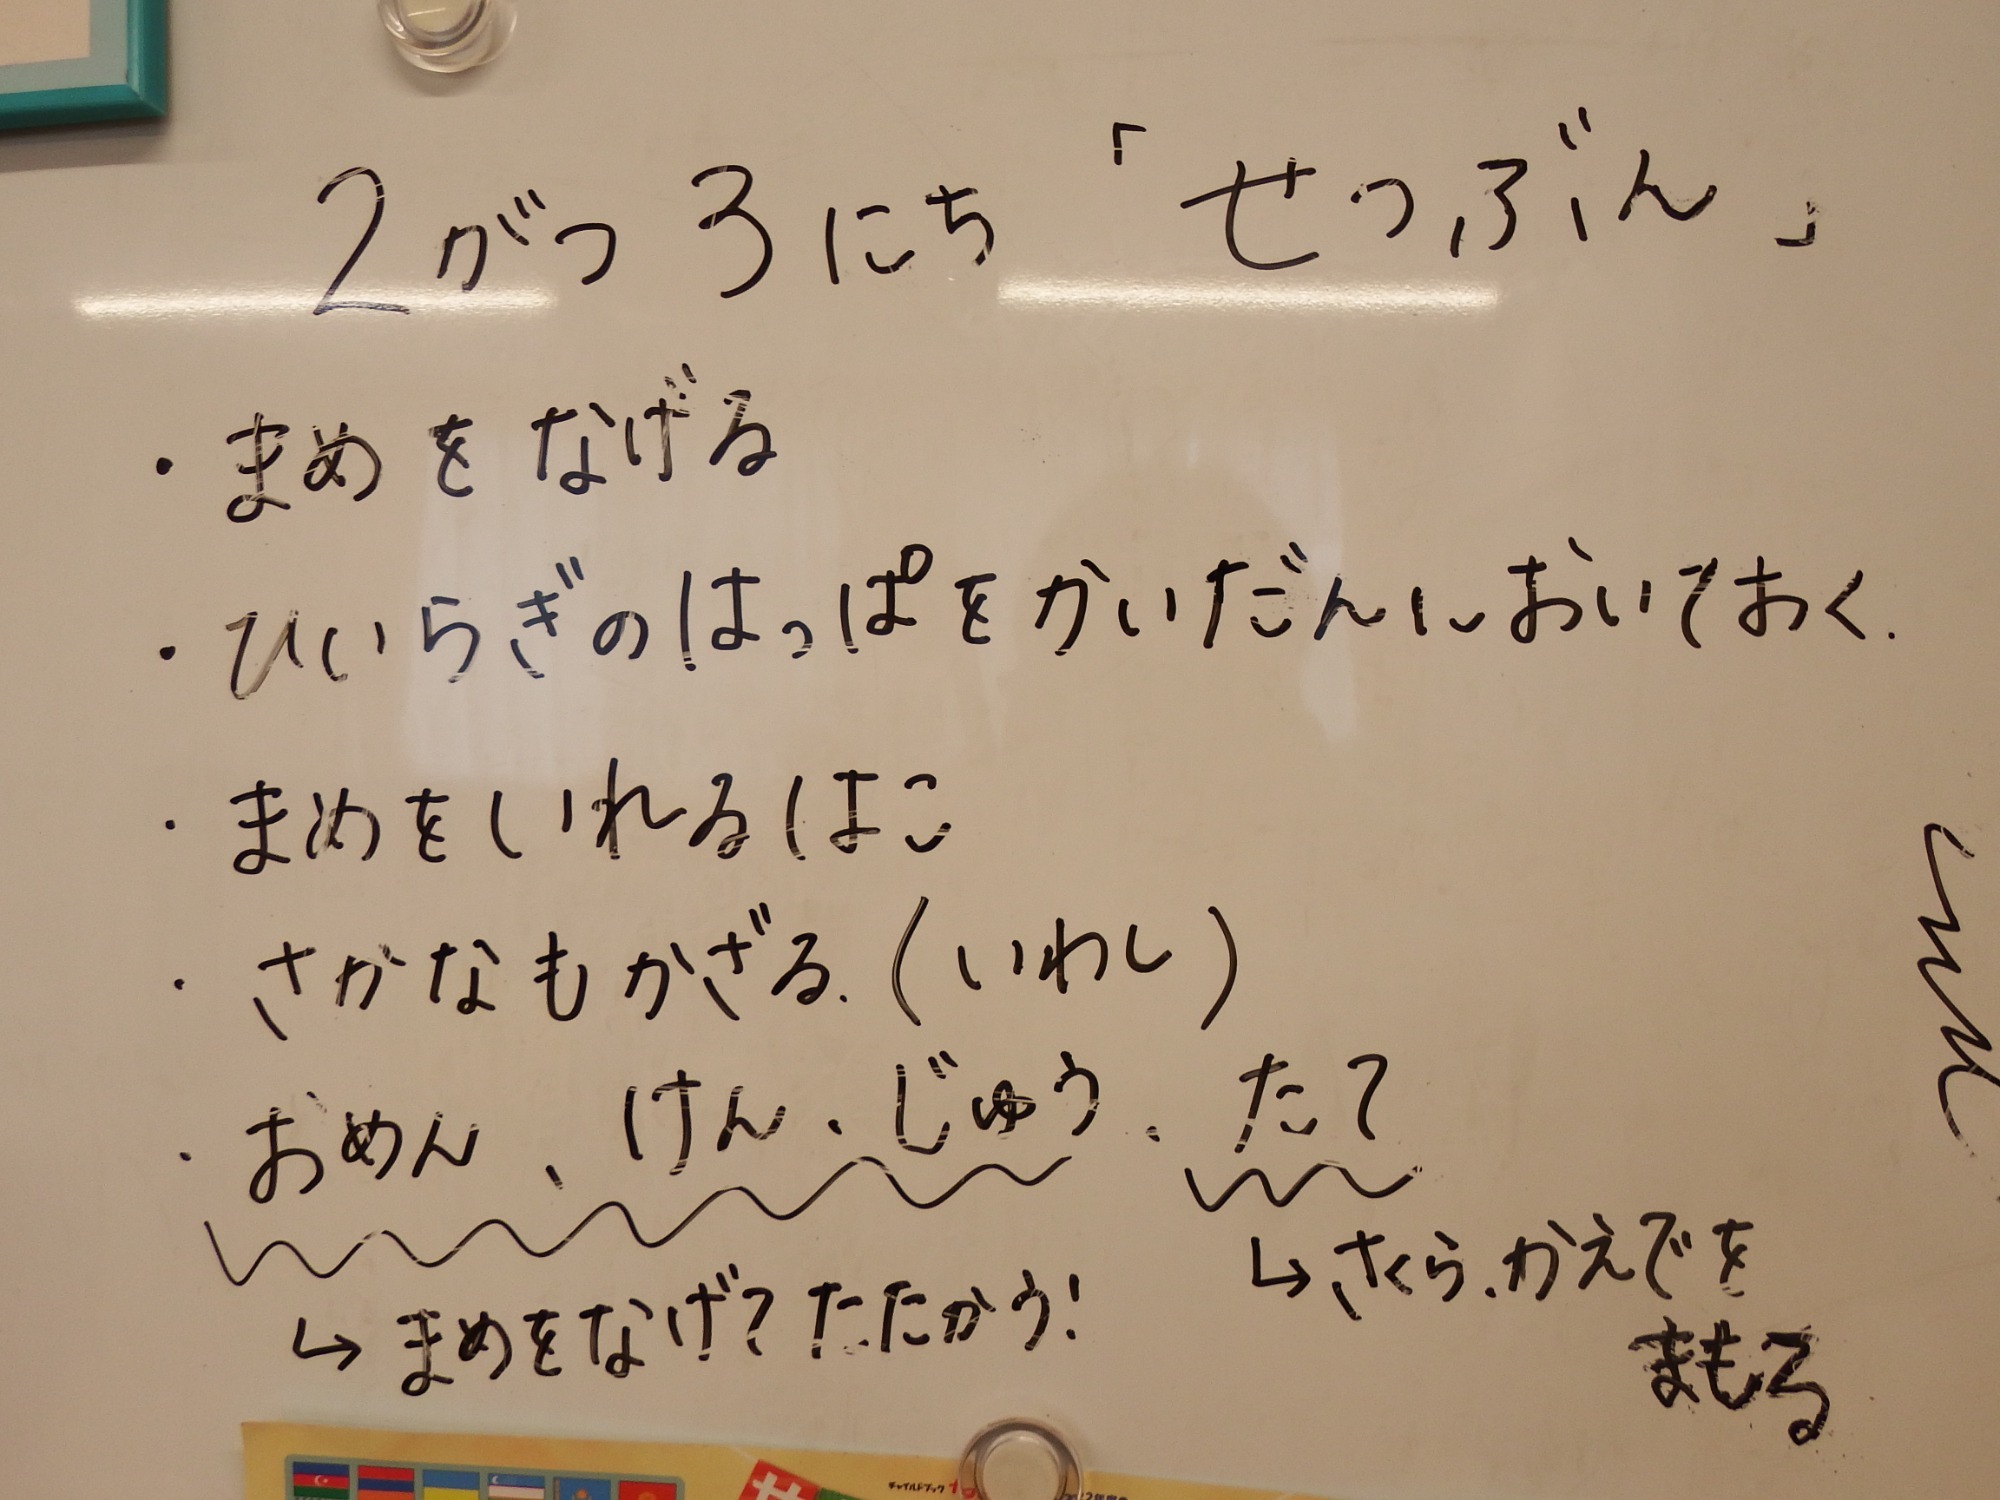 2がつ3にち「せつぶん」
・まめをなげる
・ひいらぎのはっぱをかいだんにおいておく.
・まめをいれるはこ
・さかなもかざる.(いわし)
・おめん、けん、じゅう、たて
↳まめをなげてたたかう!
↳さくら、かえでを
まもる
チャイルドブック